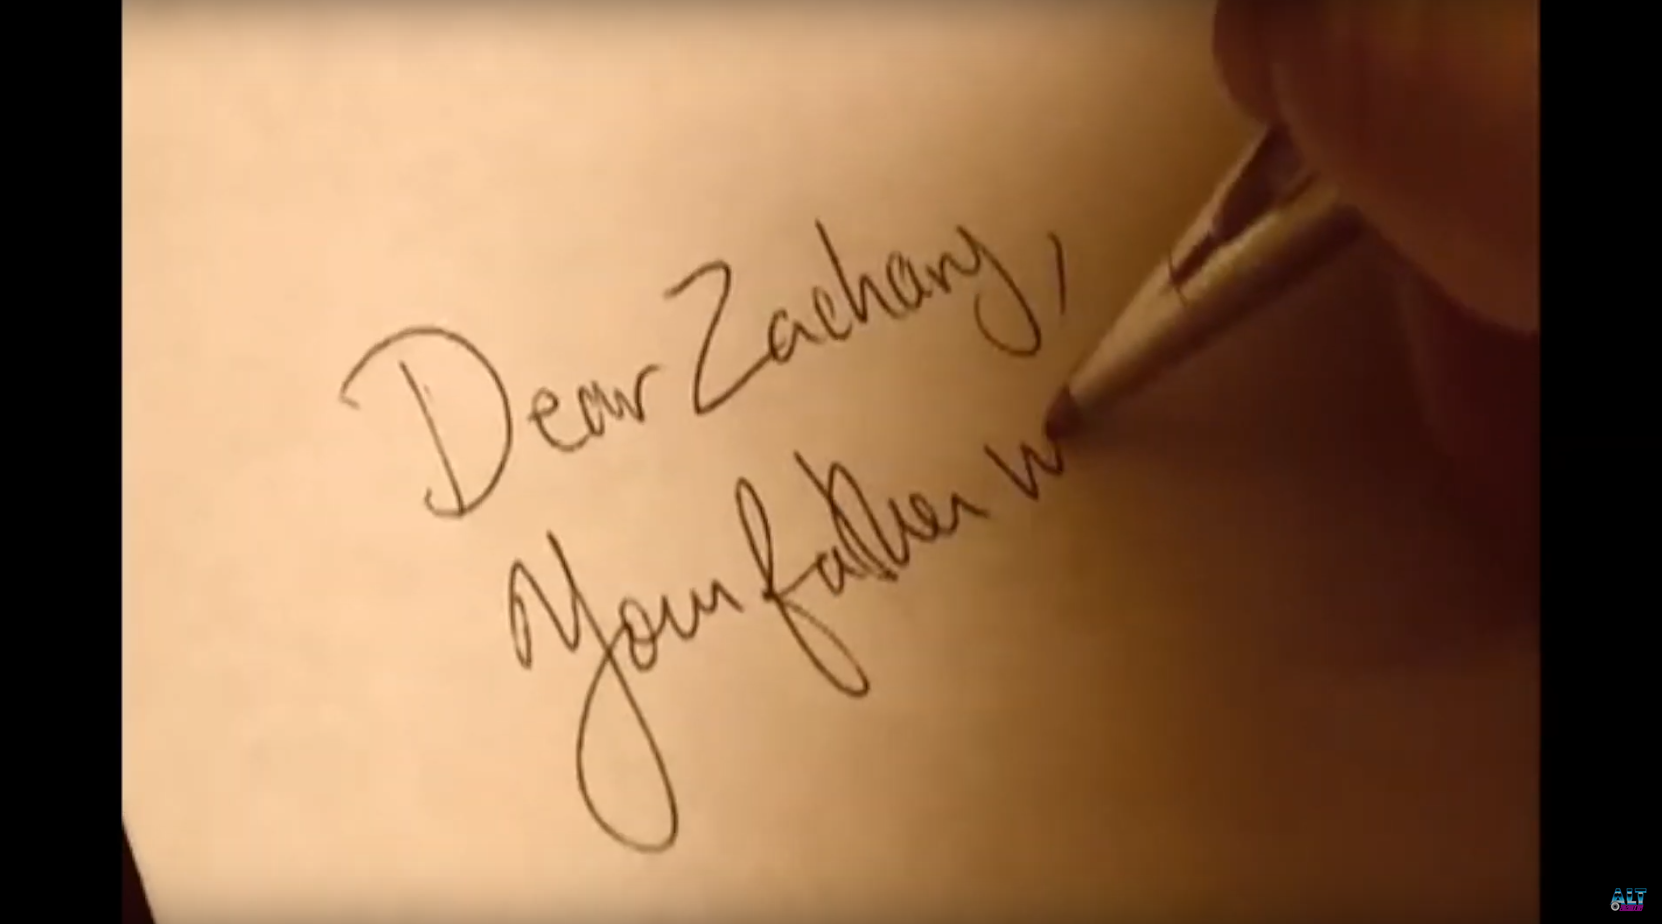 Dear Zachary,
Your father w
ALT